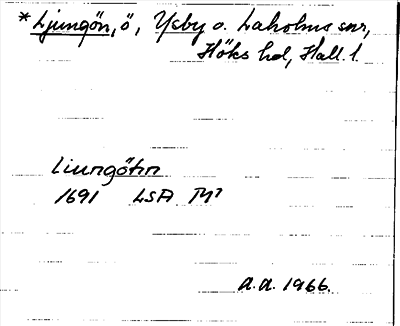 *Ljungön, ö, Ysby o. Laholms snr,
Höks hd, Hall. l.
Liungöhn
1691 LSA M7
A.A. 1966.